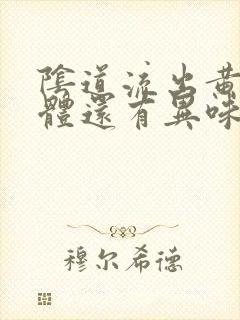 陰道流出黃
體還有異味
穆尔希德